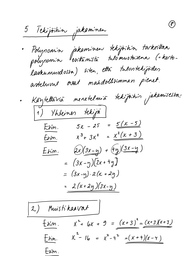 5 Tekijöihin jakaminen
• Polynomin jakaminen tekijöihin tarkoittaa
polynomin esittämistä tulomuotona (=kerto-
laskumuodossa) siten, että tulontekijöiden
asteluvut ovat mahdollisimman pienet.
• Käytettäviä menetelmiä tekijöihin jakamisessa:
1) Yhteinen tekijä
Esim. 5x - 25 = 5(x-5)
Esim. x³ + 3x² = x²(x+3)
Esim. 2x(3x-y) + 4y(3x-y)
= (3x-y)(2x+4y)
= (3x-y)·2(x+2y)
= 2(x+2y)(3x-y)
2.) Muistikaavat
Esim. x² + 6x + 9 = (x+3)² = (x+3)(x+3)
Esim. x² - 16 = x² - 4² = (x+4)(x-4)
Esim.